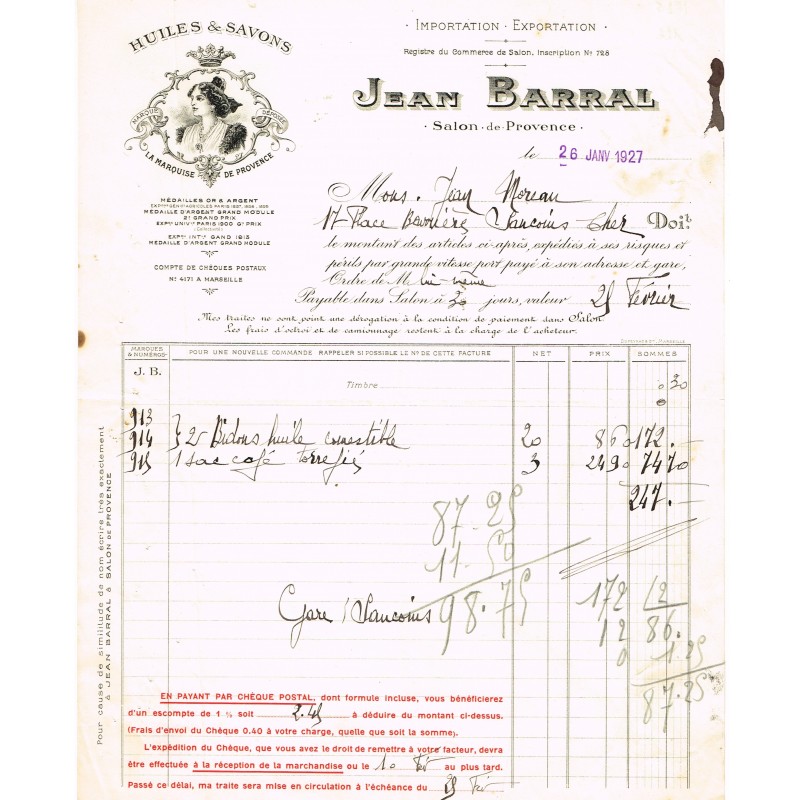 HUILES & SAVONS
MARQUE DÉPOSÉE
LA MARQUISE DE PROVENCE
MÉDAILLES OR & ARGENT
MÉDAILLE D'ARGENT GRAND MODULE
2! GRAND PRIX
EXP.on UNIV.lle PARIS 1900 G.d PRIX
EXP.on INT.le GAND 1913
MÉDAILLE D'ARGENT GRAND MODULE
COMPTE DE CHÈQUES POSTAUX
N° 4171 A MARSEILLE
· IMPORTATION - EXPORTATION ·
Registre du Commerce de Salon, Inscription N° 728
JEAN BARRAL
· Salon-de-Provence ·
le 26 JANV 1927
Mons. Jean Moreau
17 Place Sancoins Cher Doit
le montant des articles ci-après, expédiés à ses risques et
périls par grande vitesse port payé à son adresse et gare,
Ordre de M lui-même
Payable dans Salon à 30 jours, valeur 25 Février
Mes traites ne sont point une dérogation à la condition de paiement dans Salon.
Les frais d'octroi et de camionnage restent à la charge de l'acheteur.
MARQUES & NUMÉROS POUR UNE NOUVELLE COMMANDE RAPPELER SI POSSIBLE LE N° DE CETTE FACTURE NET PRIX SOMMES
J. B.
Timbre 0 30
913
914 } 2 Bidons huile comestible 20 860 172.-
915 1 sac café torrefié 3 2490 7470
247.-
87.25
11.50
98.75
Gare Sancoins
172 12
12 86.
0 1.25
87.25
Pour cause de similitude de nom écrire très exactement
à JEAN BARRAL à SALON DE PROVENCE
EN PAYANT PAR CHÈQUE POSTAL, dont formule incluse, vous bénéficierez
d'un escompte de 1 % soit 2.45 à déduire du montant ci-dessus.
(Frais d'envoi du Chèque 0.40 à votre charge, quelle que soit la somme).
L'expédition du Chèque, que vous avez le droit de remettre à votre facteur, devra
être effectuée à la réception de la marchandise ou le 10 Fév au plus tard.
Passé ce délai, ma traite sera mise en circulation à l'échéance du 25 Fév